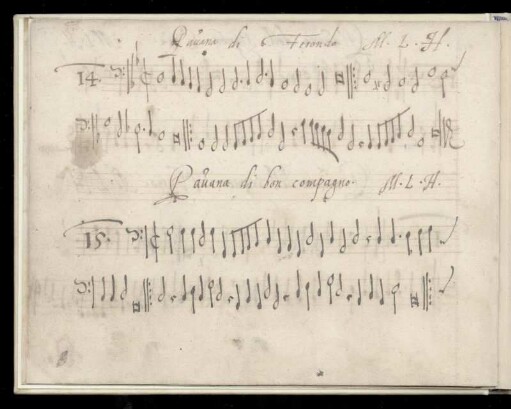 Pavana di Feronda M. L. H.
14.
Pavana di bon compagno. M. L. H.
15.